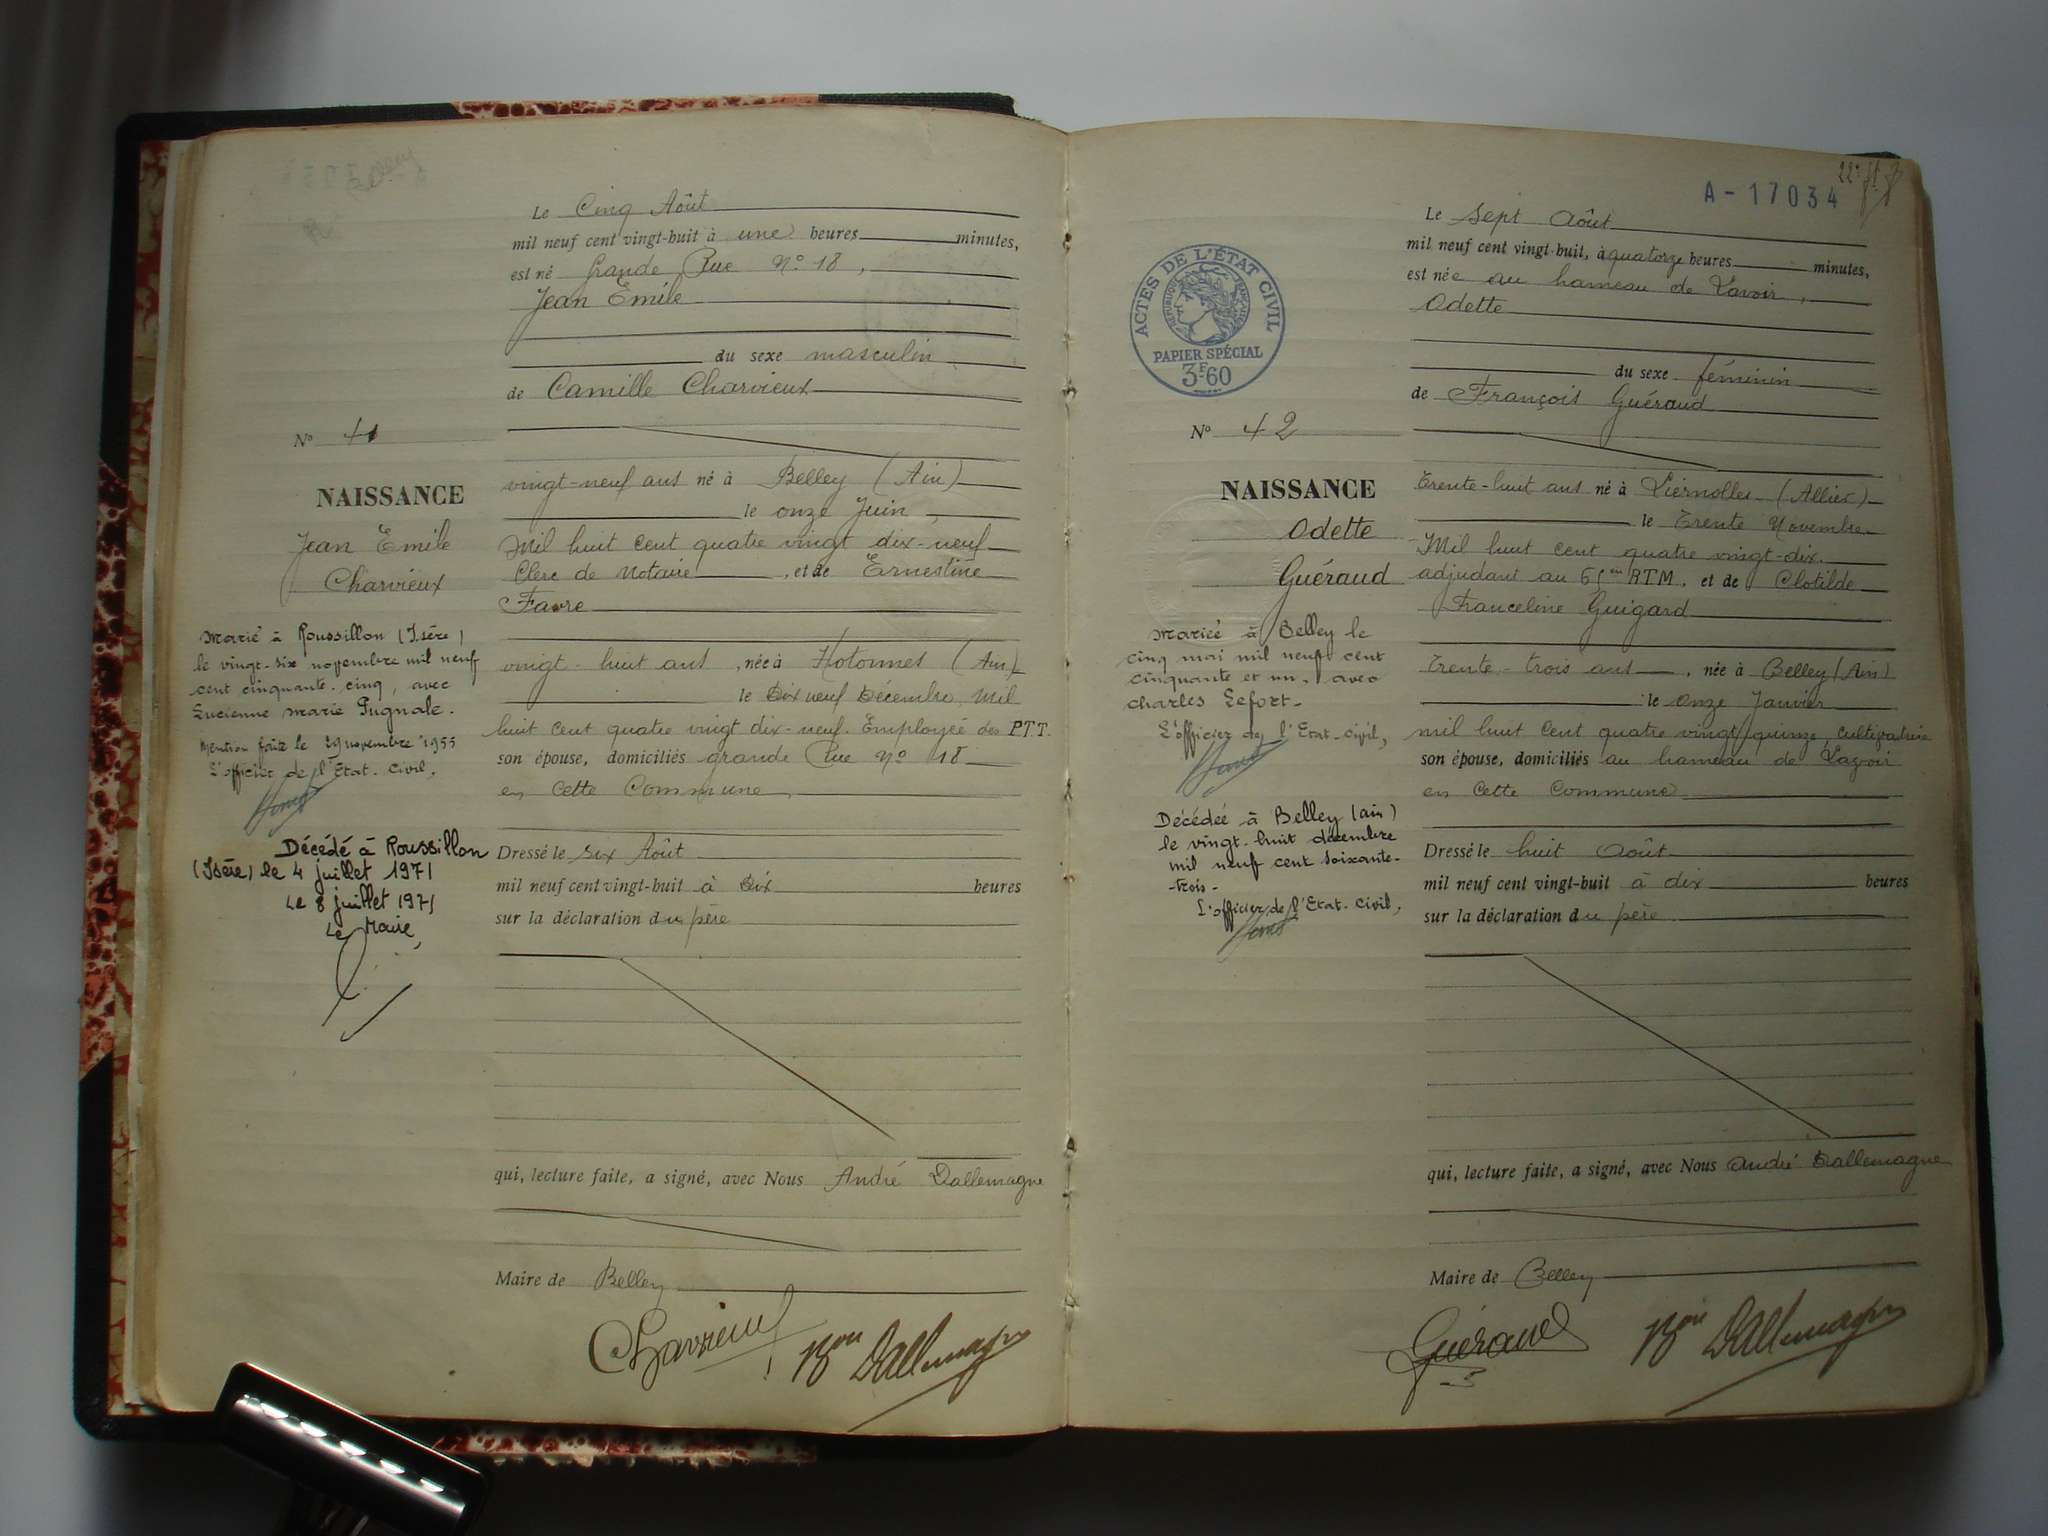 Le Cinq Août
mil neuf cent vingt-huit à une heures minutes,
est né Grande Rue N° 18,
Jean Emile
du sexe masculin
de Camille Charvieux
N° 41
NAISSANCE
Jean Emile
Charvieux
vingt-neuf ans né à Belley (Ain)
le onze Juin,
Mil huit cent quatre vingt dix-neuf
Clerc de Notaire, et de Ernestine
Favre
vingt-huit ans, née à Hotonnes (Ain)
le Dix neuf Décembre Mil
huit cent quatre vingt dix-neuf. Employée des PTT.
son épouse, domiciliés grande Rue N° 18
en cette Commune
Dressé le six Août
mil neuf cent vingt-huit à Dix heures
sur la déclaration du père
Marié à Roussillon (Isère)
le vingt-six novembre mil neuf
cent cinquante-cinq, avec
Lucienne Marie Pugnale.
Mention faite le 29 novembre 1955
L'officier de l'Etat-civil,
Décédé à Roussillon
(Isère) le 4 juillet 1971
Le 8 juillet 1971
Le Maire,
qui, lecture faite, a signé, avec Nous André Dallemagne
Maire de Belley
Charvieux
Bon Dallemagne
A-17034
ACTES DE L'ÉTAT CIVIL
RÉPUBLIQUE FRANÇAISE
PAPIER SPÉCIAL
3F60
Le Sept Août
mil neuf cent vingt-huit, à quatorze heures minutes,
est née au hameau de Lavoir,
Odette
du sexe féminin
de François Guéraud
N° 42
NAISSANCE
Odette
Guéraud
Trente-huit ans né à Liernolles (Allier)
le Trente Novembre
Mil huit cent quatre vingt-dix.
adjudant au RTM. et de Clotilde
Franceline Guigard
trente-trois ans, née à Belley (Ain)
le onze Janvier
mil huit cent quatre vingt quinze, cultivatrice
son épouse, domiciliés au hameau de Lavoir
en cette commune
Dressé le huit Août
mil neuf cent vingt-huit à dix heures
sur la déclaration du père
Mariée à Belley le
cinq mai mil neuf cent
cinquante et un, avec
Charles Lefort.
L'officier de l'Etat-civil,
Décédée à Belley (ain)
le vingt-huit décembre
mil neuf cent soixante-
-trois-
L'officier de l'Etat-civil,
qui, lecture faite, a signé, avec Nous André Dallemagne
Maire de Belley
Guéraud
Bon Dallemagne